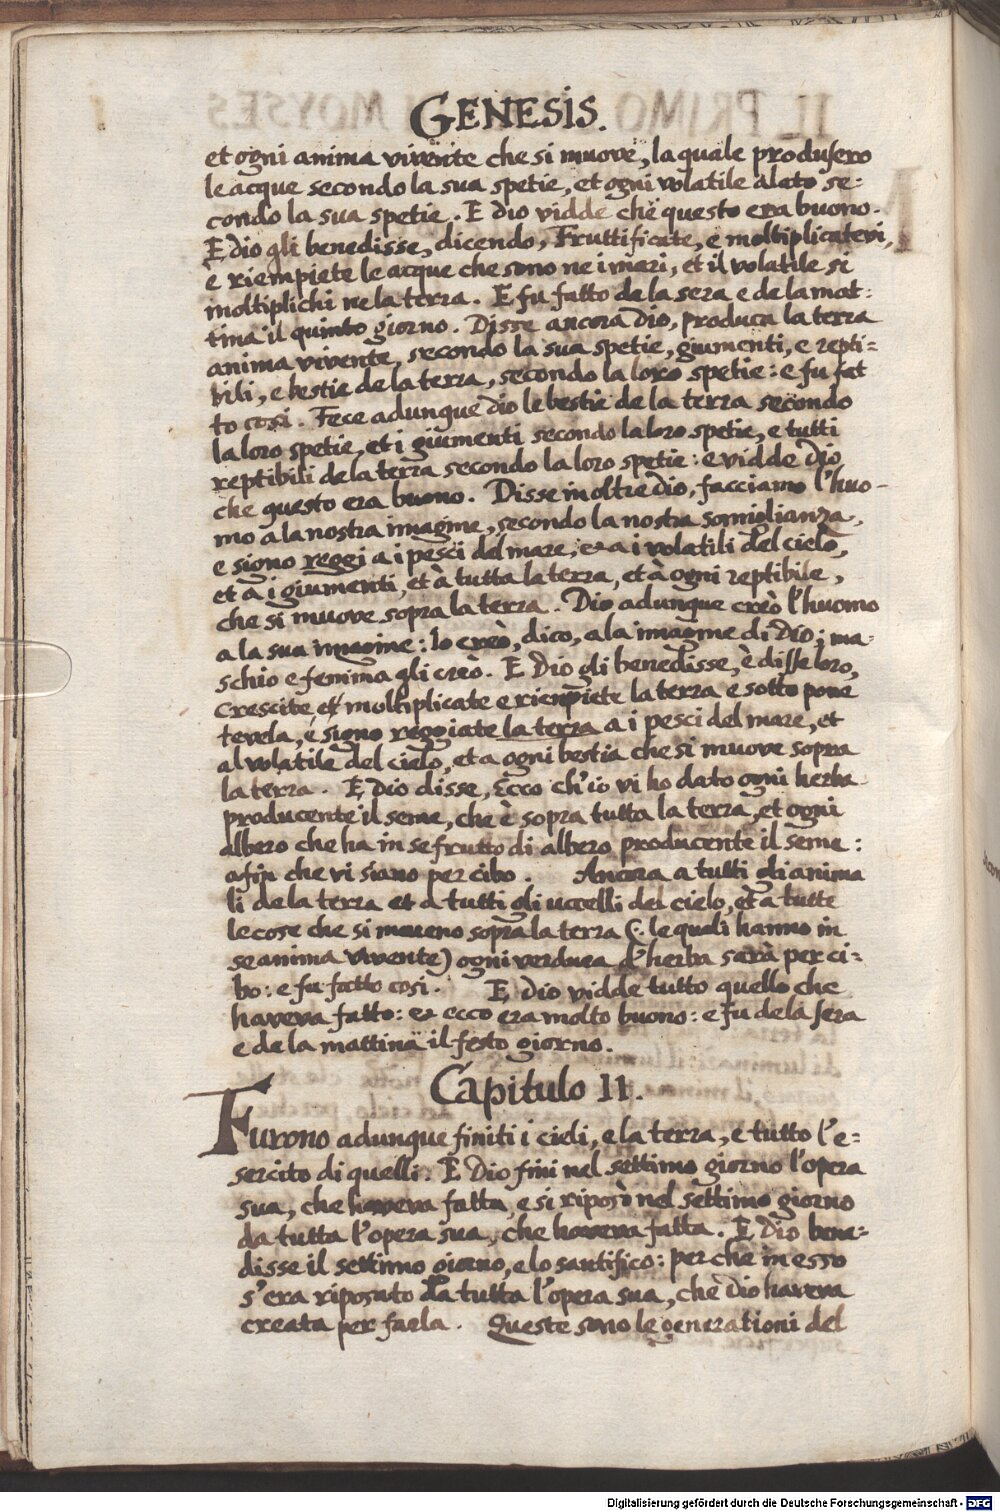 GENESIS.
et ogni anima vivente che si muove, la quale produssero
le acque secondo la sua spetie, et ogni volatile alato se:
condo la sua spetie. E dio vidde che questo era buono.
E dio gli benedisse, dicendo, Fruttificate, e moltiplicatevi,
e riempiete le acque che sono ne i mari, et il volatile si
moltiplichi ne la terra. E fu fatto de la sera e de la mat:
tina il quinto giorno. Disse ancora dio, produca la terra
anima vivente, secondo la sua spetie, giumenti, e repti=
bili, e bestie de la terra, secondo la loro spetie: e fu fat
to cosi. Fece adunque dio le bestie de la terra secondo
la loro spetie, et i giumenti secondo la loro spetie, e tutti
reptibili de la terra secondo la loro spetie: e vidde dio
che questo era buono. Disse inoltre dio, facciamo l'huo-
mo a la nostra imagine, secondo la nostra somiglianza,
e signoreggi a i pesci del mare, et a i volatili del cielo,
et a i giumenti, et à tutta la terra, et à ogni reptibile,
che si muove sopra la terra. Dio adunque creò l'huomo
a la sua imagine: lo creò, dico, a la imagine di dio; ma-
schio e femina gli creò. E Dio gli benedisse, è disse loro,
crescite, et moltiplicate e riempiete la terra e sotto pone
tevela, e signoreggiate la terra a i pesci del mare, et
al volatile del cielo, et a ogni bestia che si muove sopra
la terra. E dio disse, Ecco ch'io vi ho dato ogni herba
producente il seme, che è sopra tutta la terra, et ogni
albero che ha in se frutto di albero producente il seme:
afin che vi siano per cibo. Ancora a tutti gli anima
li de la terra et à tutti gli uccelli del cielo, et a tutte
le cose che si moveno sopra la terra (: le quali hanno in
se anima vivente) ogni verdura d'herba sarà per ci:
bo: e fu fatto cosi. E dio vidde tutto quello che
haveva fatto: et ecco era molto buono: e fu de la sera
e de la mattina il sesto giorno.
Capitulo II.
Furono adunque finiti i cieli, e la terra, e tutto l'e=
sercito di quelli. E Dio finì nel settimo giorno l'opera
sua, che haveva fatta, e si riposò nel settimo giorno
da tutta l'opera sua, che haveva fatta. E Dio bene-
disse il settimo giorno, e lo santifico: perche in esso
s'era riposato da tutta l'opera sua, che Dio haveva
creata per farla. Queste sono le generationi del
Digitalisierung gefördert durch die Deutsche Forschungsgemeinschaft - DFG